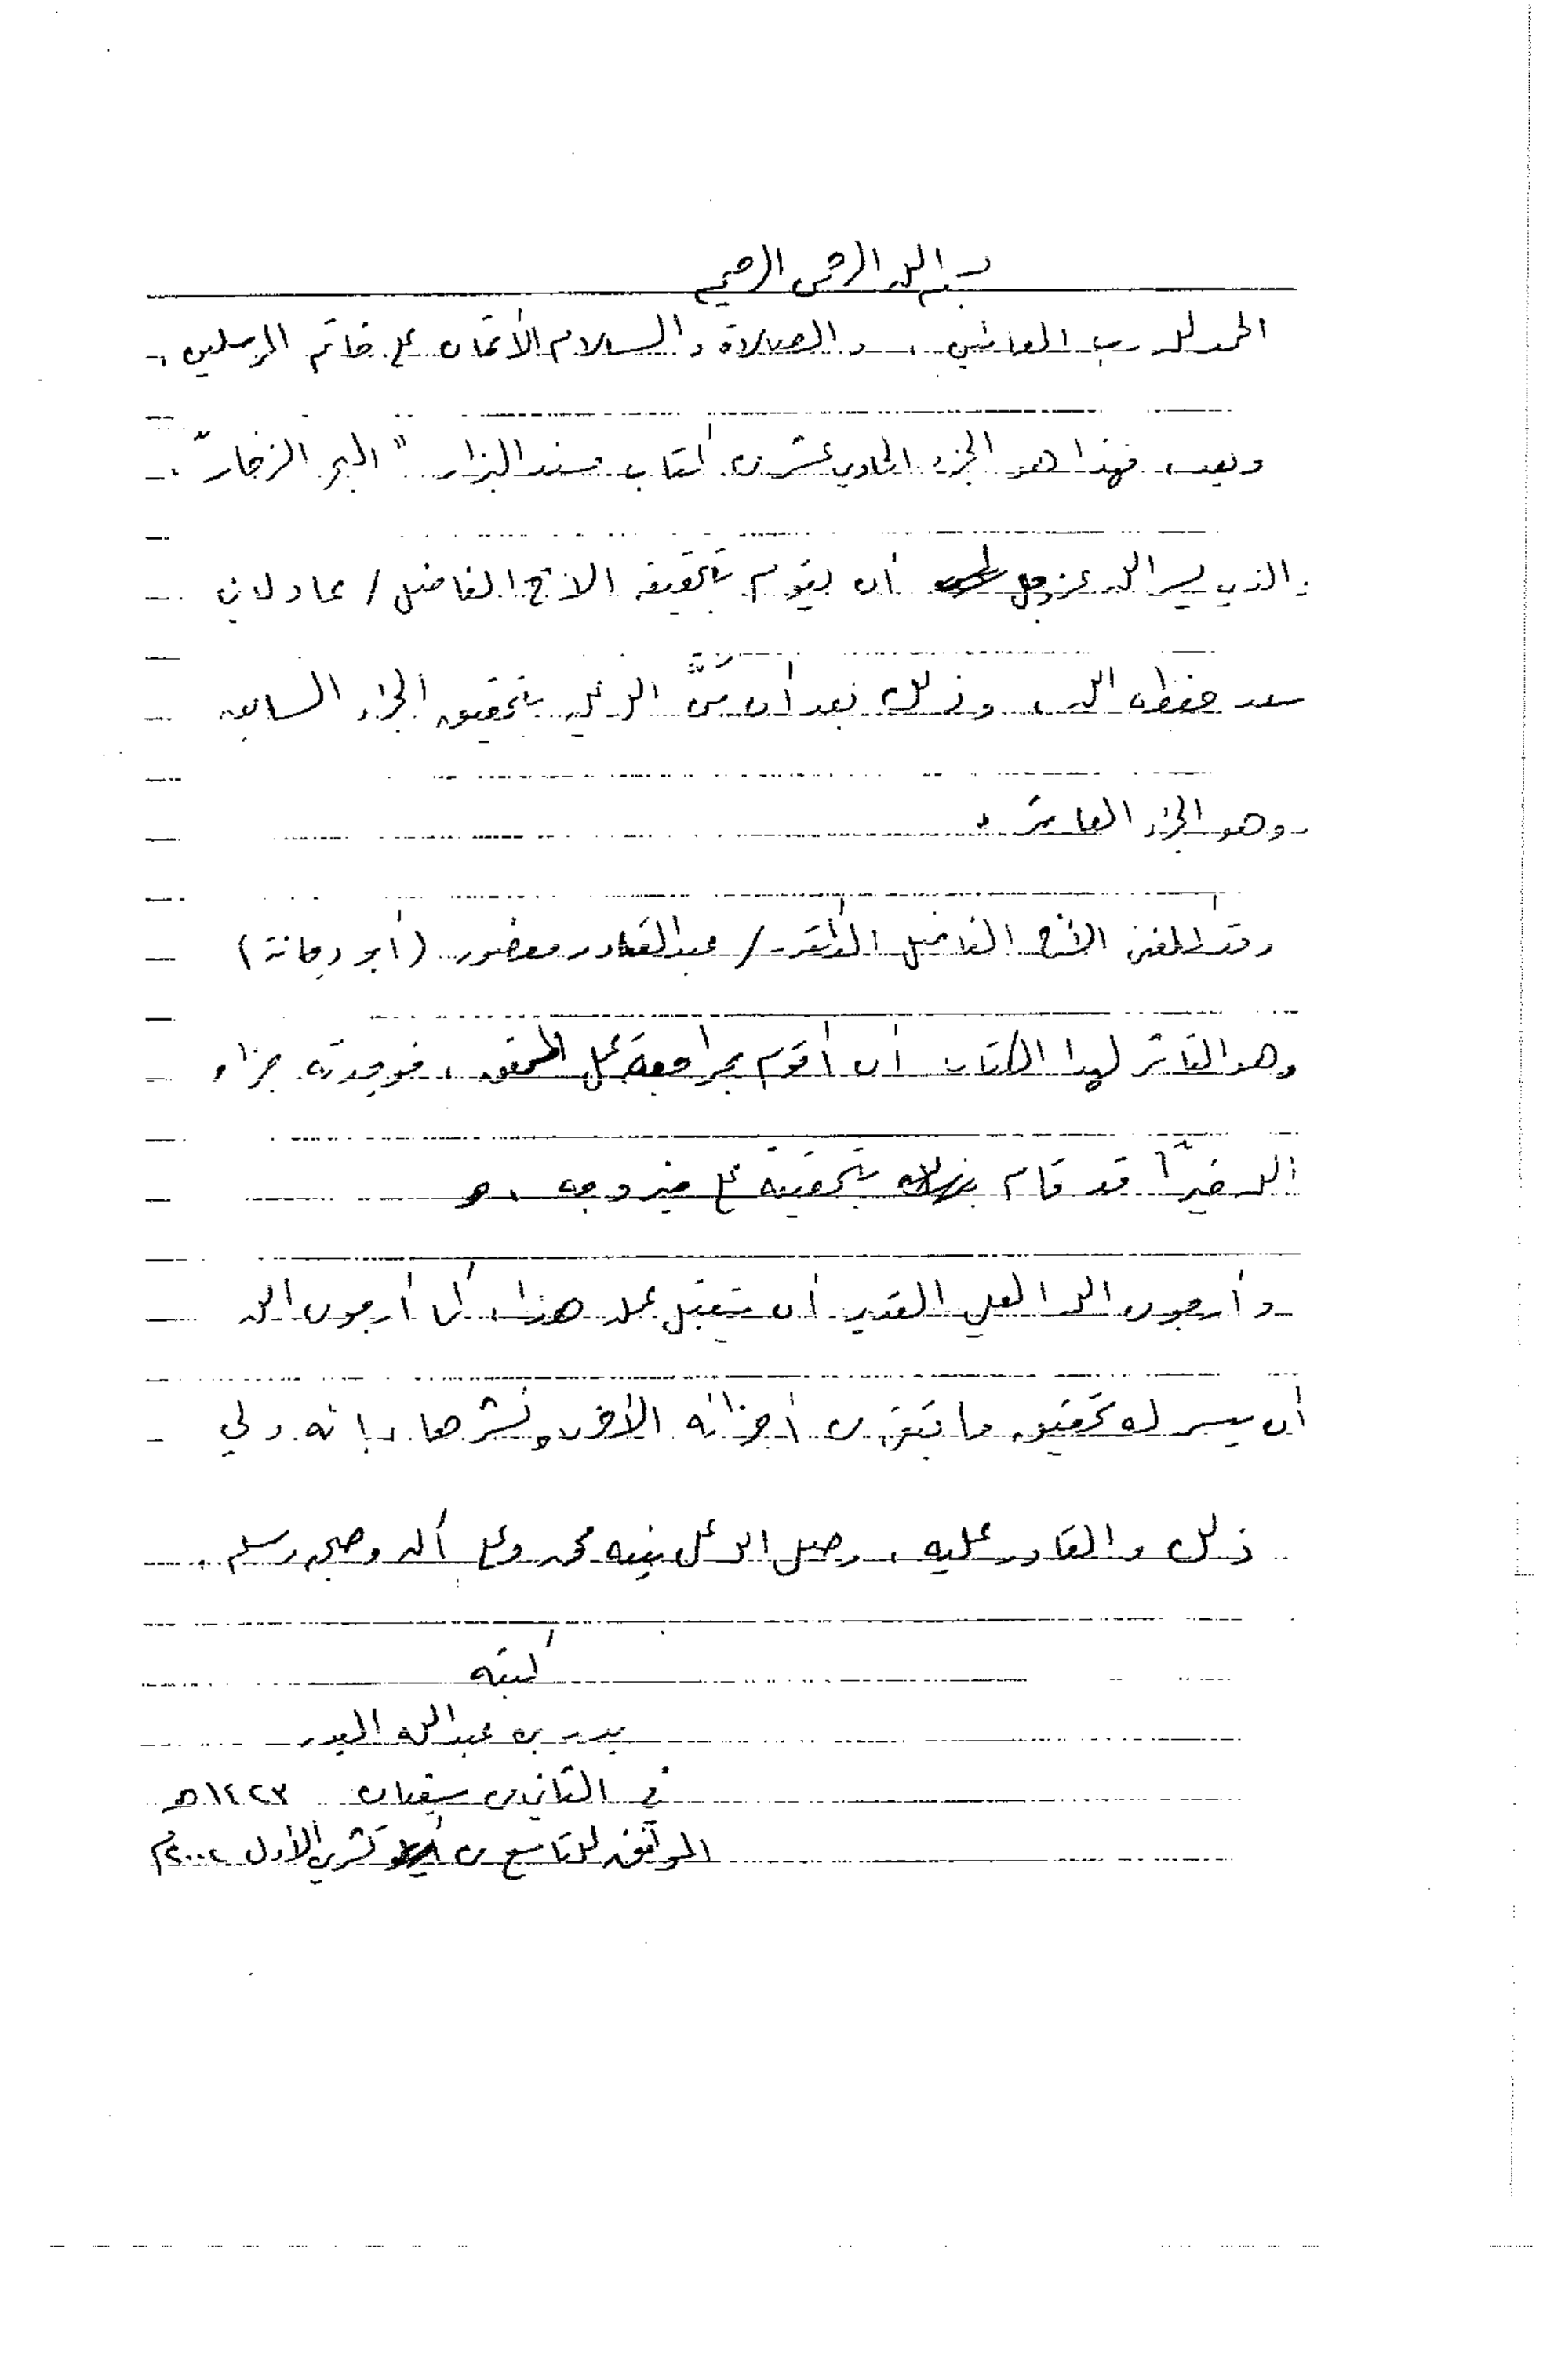 بسم الله الرحمن الرحيم
الحمد لله رب العالمين ، والصلاة والسلام الأتمان على خاتم المرسلين ،
وبعد فهذا هو الجزء الحادي عشر من كتاب مسند البزار " البحر الزخار " .
والذي يسر الله عز وجل أن يقوم بتحقيقه الأخ الفاضل / عادل بن
سعد حفظه الله ، وذلك بعد أن منَّ الله عليه بتحقيق الجزء السابع
وهو الجزء العاشر .
وقد كلفني الأخ الفاضل / عبد القادر منصور (أبو رحانة)
وهو الناشر لهذا الكتاب أن أقوم بمراجعة عمل المحقق ، فوجدته جزاه
الله خيرًا قد قام بتحقيقه على خير وجه .
وأرجو من الله العلي القدير أن يتقبل عمله هذا ، كما أرجو من الله
أن ييسر له تحقيق ما تبقى من أجزائه الأخرى ونشرها ، إنه ولي
ذلك والقادر عليه ، وصل الله على نبيه محمد وعلى آله وصحبه وسلم .
كتبه
بدر بن عبد الله البدر
في الثاني من شعبان ١٤٢٣ هـ
الموافق للتاسع من تشرين الأول ٢٠٠٢م